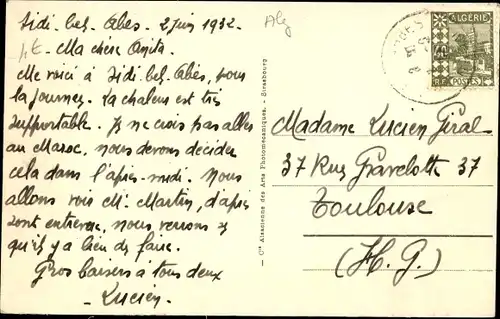 Sidi. bel. Abes. 2 juin 1932.
Alg
Ma chère Anita.
Me voici à Sidi. bel. Abès, pour
la journée. La chaleur est très
supportable. Je ne crois pas aller
au Maroc, nous devons décider
cela dans l'après-midi. Nous
allons voir M. Martin, d'après
sont entrevue, nous verrons ce
qu'il y a lieu de faire.
Gros baisers à tous deux
- Lucien.
— Cie Alsacienne des Arts Photomécaniques. - Strasbourg
ALGÉRIE
40
POSTES
Madame Lucien Giral
37 Rue Gravelotte 37
Toulouse
(H. G.)